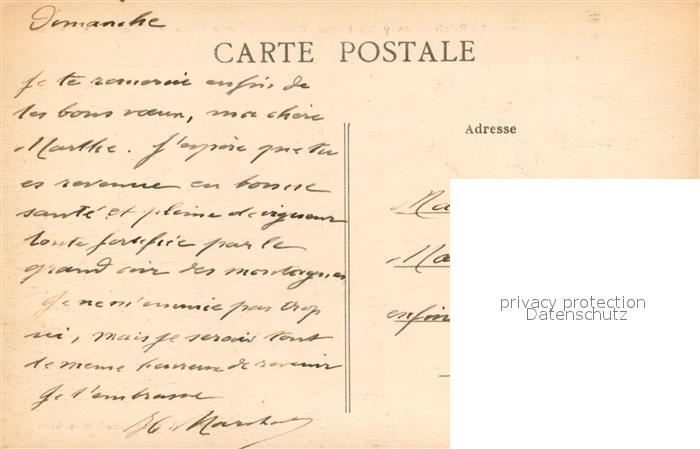 Dimanche
CARTE POSTALE
Je te remercie enfin de
tes bons vœux, ma chère
Marthe. J'espère que tu
es revenue en bonne
santé et pleine de vigueur
toute fortifiée par le
grand air des montagnes
Je ne m'ennuie pas trop
ici, mais je serais tout
de meme heureux de revenir
Je t'embrasse
Adresse
Ma
Ma
enfin
privacy protection
Datenschutz